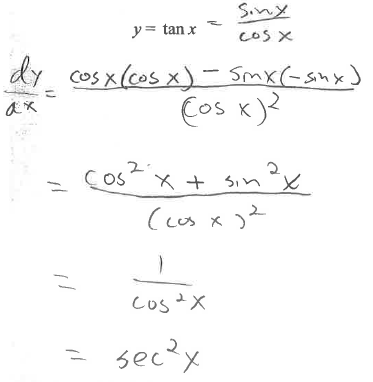 y = tan x = sin x / cos x
dy/dx = cos x (cos x) - sin x (-sin x) / (cos x)²
= cos² x + sin² x / (cos x)²
= 1 / cos² x
= sec² x